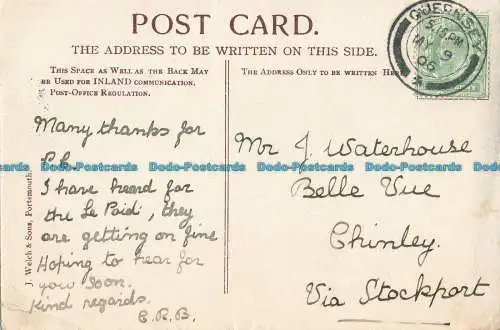 POST CARD.
THE ADDRESS TO BE WRITTEN ON THIS SIDE.
THIS SPACE AS WELL AS THE BACK MAY
BE USED FOR INLAND COMMUNICATION.
POST-OFFICE REGULATION.
THE ADDRESS ONLY TO BE WRITTEN HERE
GUERNSEY
5.15PM
MY 9
06
Many thanks for
P.C.
I have heard for
the Le Poidi, they
are getting on fine
Hoping to hear for
you soon.
Kind regards.
C.R.B.
Mr J. Waterhouse
Belle Vue
Chinley.
Via Stockport
J. Welch & Sons, Portsmouth.
Dodo-Postcards Dodo-Postcards Dodo-Postcards Dodo-Postcards
Dodo-Postcards Dodo-Postcards Dodo-Postcards Dodo-Postcards